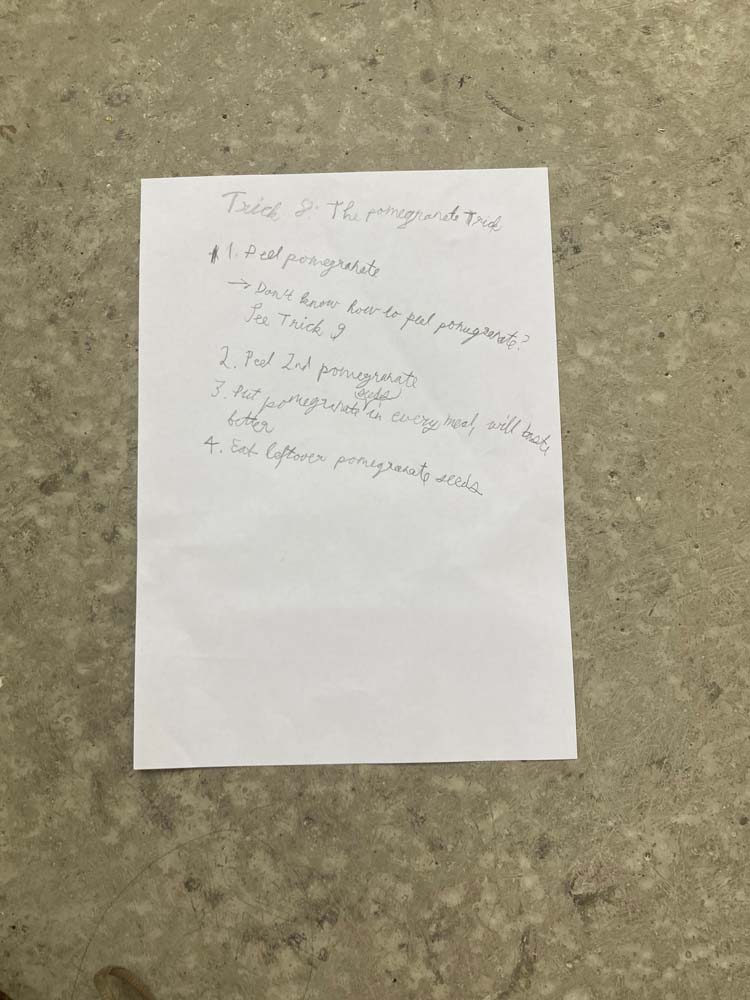 Trick 8: The pomegranate Trick
1. Peel pomegranate
→ Don't know how to peel pomugranate?
See Trick 9
2. Peel 2nd pomegranate
seeds
3. Put pomegranate in every meal, will taste
better
4. Eat leftover pomegranate seeds